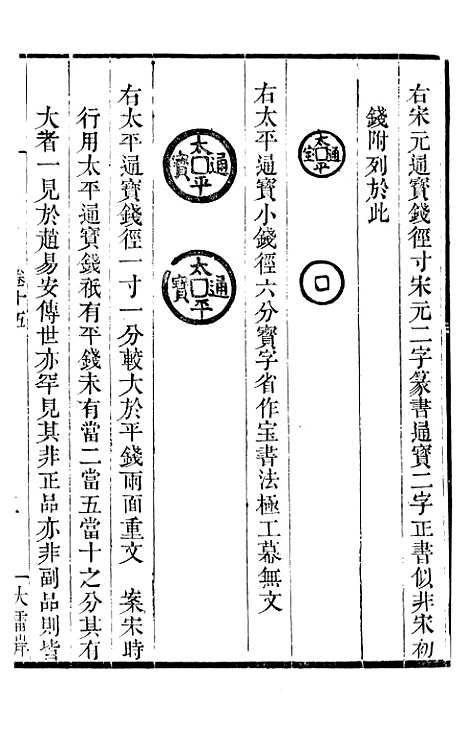 右宋元通寶錢徑寸宋元二字篆書通寶二字正書似非宋初
錢附列於此
太平通宝
右太平通寶小錢徑六分寶字省作宝書法極工幕無文
太平通寶
太平通寶
右太平通寶錢徑一寸一分較大於平錢兩面重文　案宋時
行用太平通寶錢祇有平錢未有當二當五當十之分其有
大者一見於趙易安傳世亦罕見其非正品亦非副品則皆
卷十五